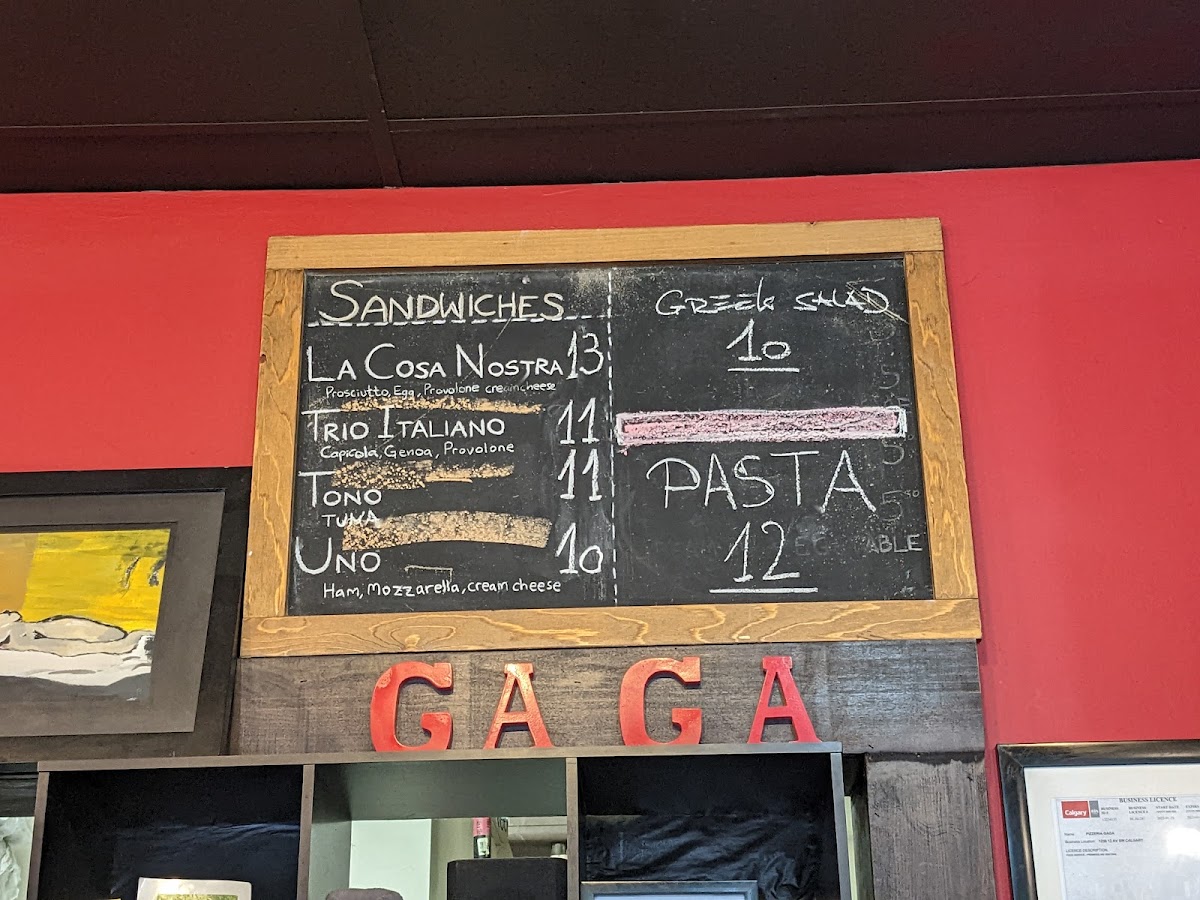 SANDWICHES
LA COSA NOSTRA 13
Prosciutto, Egg, Provolone creamcheese
TRIO ITALIANO 11
Capicola, Genoa, Provolone
TONO 11
TUNA
UNO 10
Ham, Mozzarella, cream cheese
GREEK SALAD
10
PASTA
12
GAGA
BUSINESS LICENCE
Calgary
PIZZERIA GAGA